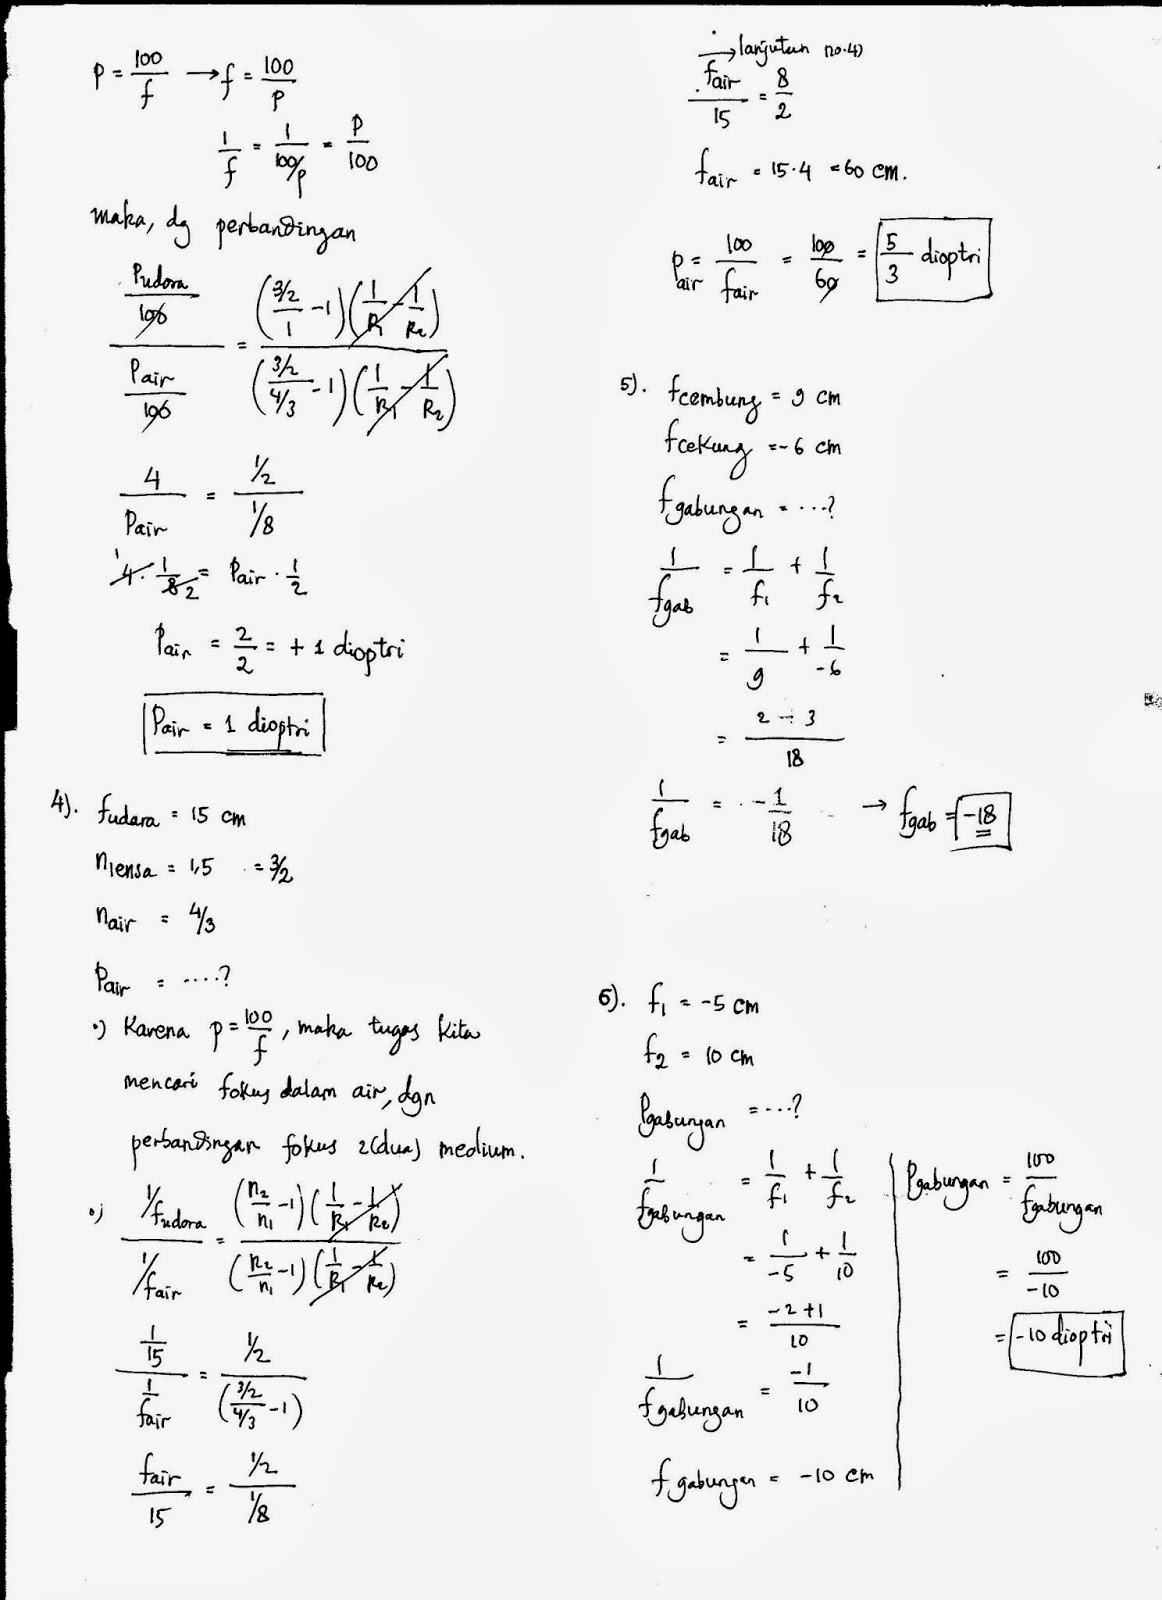 P = 100/f → f = 100/P
1/f = 1/(100/P) = P/100
maka, dg perbandingan
(Pudara/100)/(Pair/100) = ((3/2)/1 - 1)(1/R1 - 1/R2) / ((3/2)/(4/3) - 1)(1/R1 - 1/R2)
4/Pair = (1/2)/(1/8)
4 · 1/8 = Pair · 1/2
1 2
Pair = 2/2 = + 1 dioptri
Pair = 1 dioptri
4). fudara = 15 cm
nlensa = 1,5 = 3/2
nair = 4/3
Pair = ....?
•) Karena p = 100/f, maka tugas kita
mencari fokus dalam air, dgn
perbandingan fokus 2(dua) medium.
•) (1/fudara)/(1/fair) = (n2/n1 - 1)(1/R1 - 1/R2) / (n2/n1 - 1)(1/R1 - 1/R2)
(1/15)/(1/fair) = (1/2)/((3/2)/(4/3) - 1)
fair/15 = (1/2)/(1/8)
→ lanjutan no.4)
fair/15 = 8/2
fair = 15·4 = 60 cm.
Pair = 100/fair = 100/60 = 5/3 dioptri
5). fcembung = 9 cm
fcekung = -6 cm
fgabungan = ...?
1/fgab = 1/f1 + 1/f2
= 1/9 + 1/-6
= (2 - 3)/18
1/fgab = -1/18 → fgab = -18
6). f1 = -5 cm
f2 = 10 cm
Pgabungan = ...?
1/fgabungan = 1/f1 + 1/f2
= 1/-5 + 1/10
= (-2+1)/10
1/fgabungan = -1/10
fgabungan = -10 cm
Pgabungan = 100/fgabungan
= 100/-10
= -10 dioptri